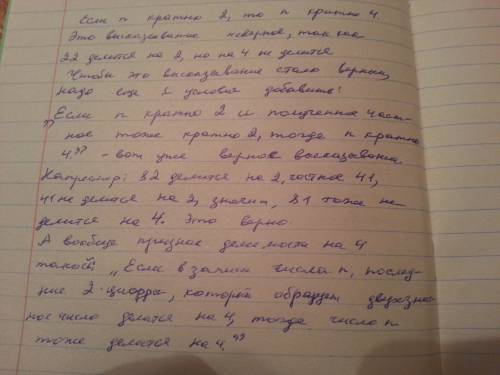 Если n кратно 2, то n кратно 4.
Это высказывание неверное, так как
22 делится на 2, но на 4 не делится
Чтобы это высказывание стало верным,
надо еще 1 условия добавить:
„Если n кратно 2 и полученное част-
ное тоже кратно 2, тогда n кратно
4." - вот уже верное высказывание
Например: 82 делится на 2, частное 41,
41 не делится на 2, значит, 81 тоже не
делится на 4. Это верно.
А вообще признак делимости на 4
такой: „Если в записи числа n, послед-
ние 2 цифры, которые образуют двузнач-
ное число делится на 4, тогда число n
тоже делится на 4."